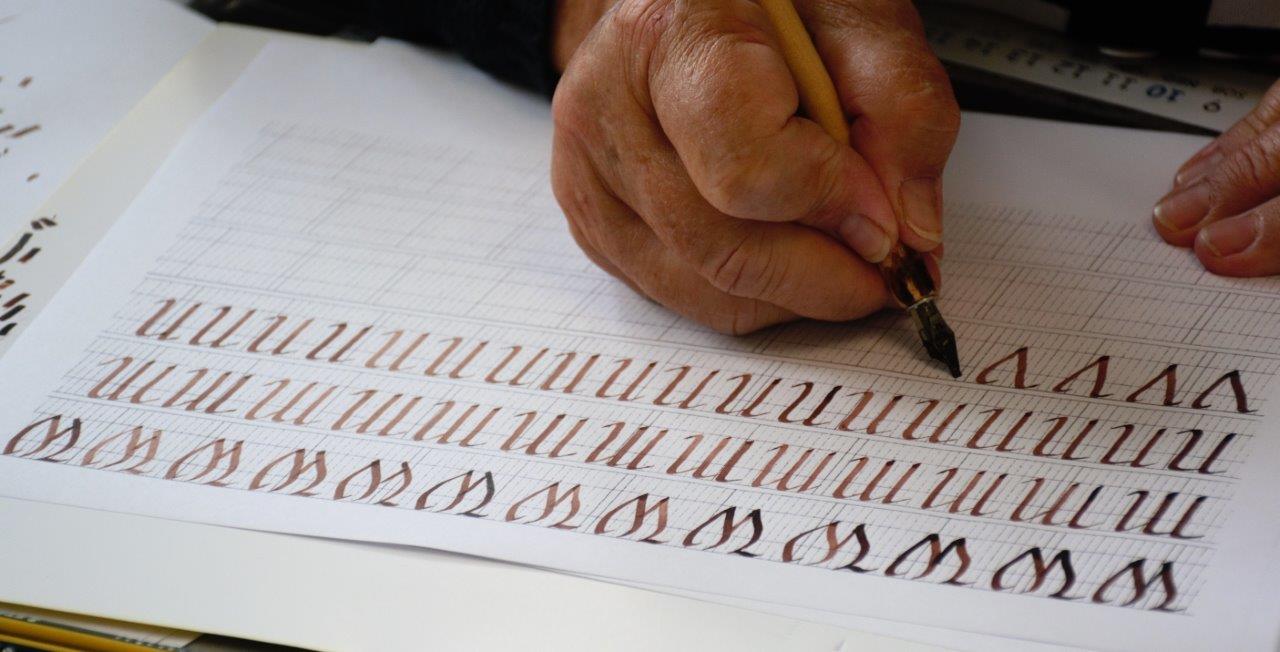 w w w w w w w w w w w w w
m m m m m m m m m m m m m
n n n n n n n n n n n n n n n n n n
v v v v
9 10 11 12 13